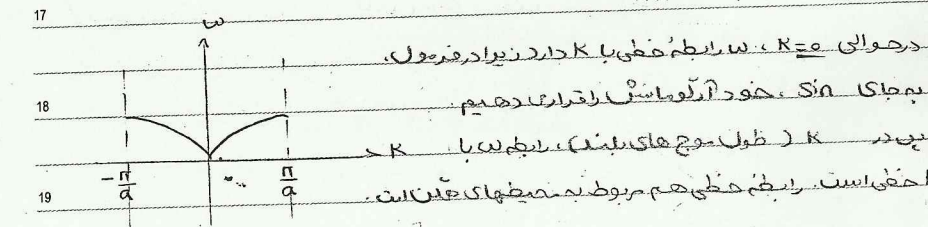 17
ω
در حوالی K=0 ، ω رابطهٔ خطی با K دارد زیرا در فرمول،
18
به جای Sin ، خود آرگومانش را قرار می دهیم.
پس در K (طول موج های بلند)، رابطه ω با K
K
-π/a
π/a
19
خطی است. رابطهٔ خطی هم مربوط به محیطهای